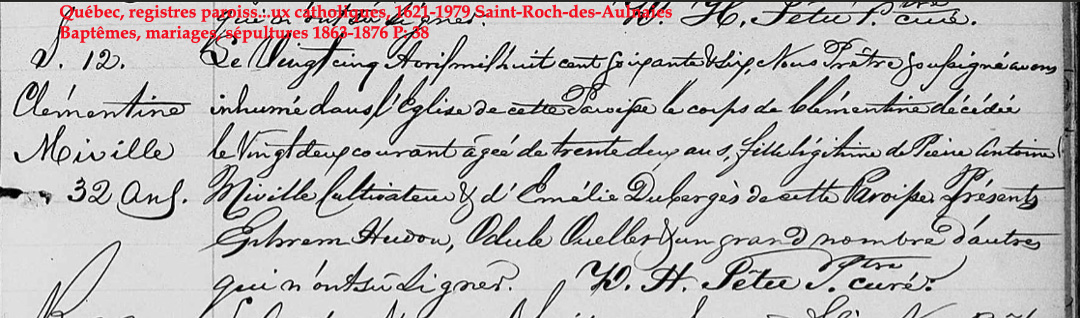 Québec, registres paroiss...ux catholiques, 1621-1979 Saint-Roch-des-Aulnaies
Baptêmes, mariages, sépultures 1863-1876 P: 38
qui n'ont su signer. D. H. Têtu Ptre curé.
S. 12. Le Vingt cinq Avril mil huit cent soixante & six, Nous Prêtre soussigné avons
Clémentine inhumé dans l'Église de cette Paroisse le corps de Clémentine décédée
Miville le Vingt deux courant âgée de trente deux ans, fille légitime de Pierre Antoine
32 Ans. Miville Cultivateur & d'Emélie Dubergès de cette Paroisse. Présents
Ephrem Hudon, Odule Ouellet & un grand nombre d'autres
qui n'ont su signer. D. H. Têtu Ptre curé.